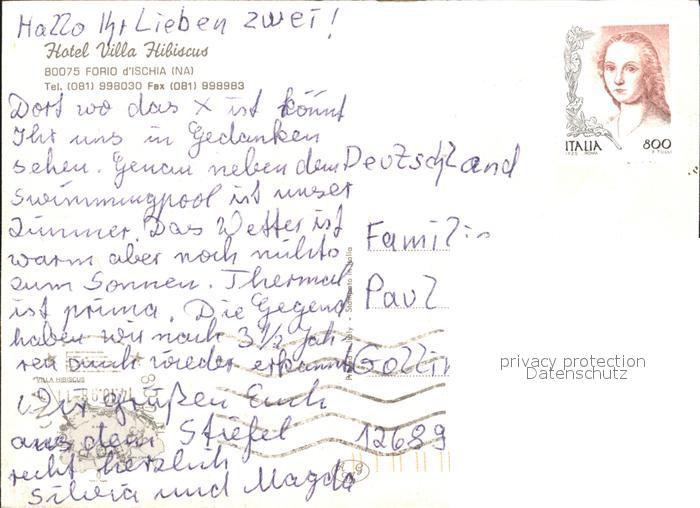 Hallo Ihr Lieben zwei!
Hotel Villa Hibiscus
80075 FORIO d'ISCHIA (NA)
Tel. (081) 998030 Fax (081) 998983
Dort wo das X ist könnt
Ihr uns in Gedanken
sehen. Genau neben dem
Swimmingpool ist unser
Zimmer. Das Wetter ist
warm aber noch nichts
zum Sonnen. Thermal
ist prima. Die Gegend
haben wir nach 3 1/2 Jah
ren auch wieder erkannt
Wir grüßen Euch
aus dem Stiefel
recht herzlich
Silvia und Magda
ITALIA 800
Deutschland
Familie
Paul
Gollin
12689
VILLA HIBISCUS
privacy protection
Datenschutz